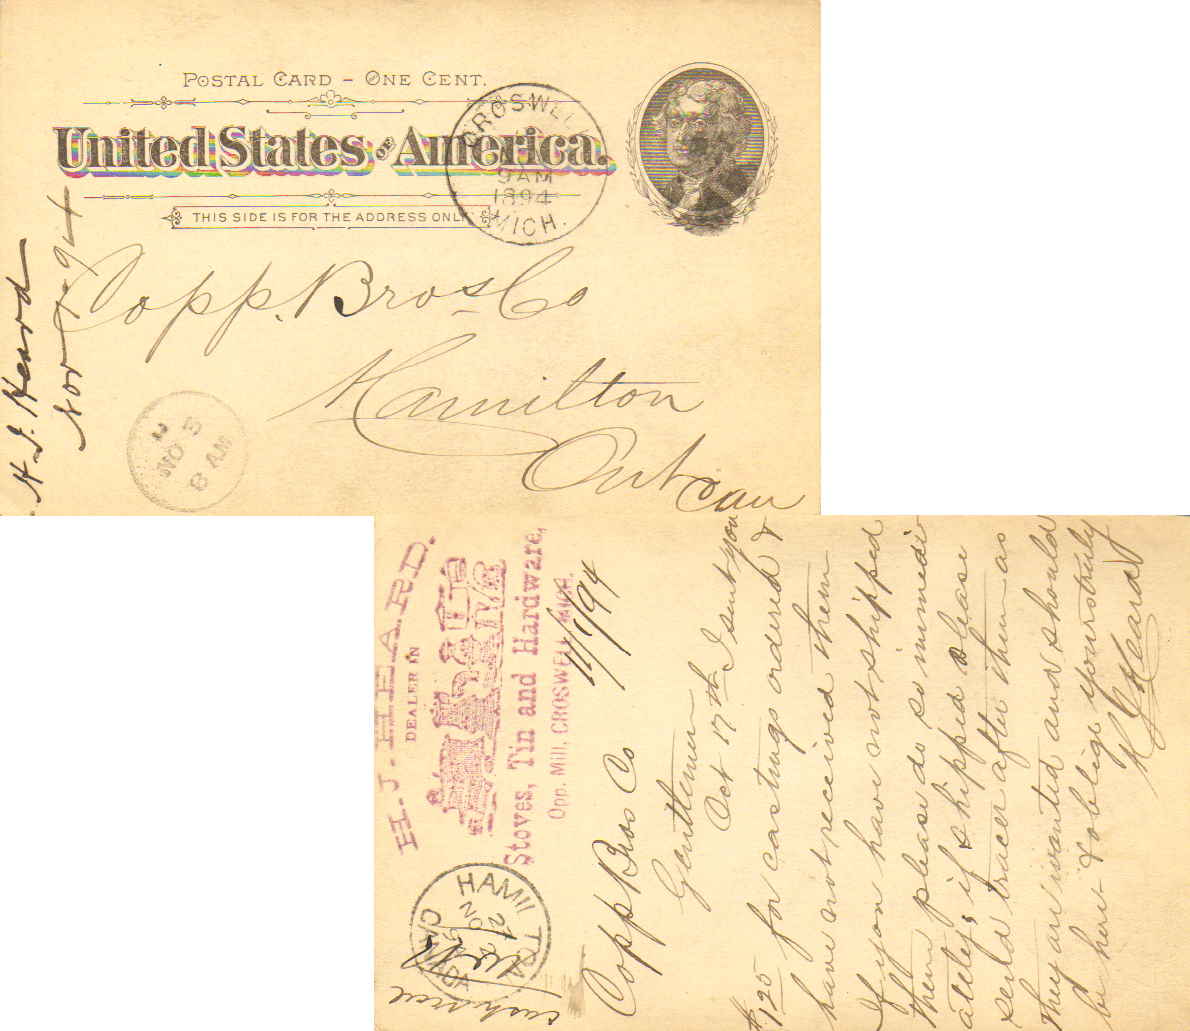 POSTAL CARD – ONE CENT.
United States OF America.
THIS SIDE IS FOR THE ADDRESS ONLY
CROSWELL
9 AM
1894
MICH.
Copp. Bros Co
Hamilton
Ont Can
H. J. Heard
Nov 7-94
NO 5
8 AM
H. J. HEARD.
DEALER IN
Stoves, Tin and Hardware,
Opp. Mill, CROSWELL, MICH.
HAMILTON
CANADA
NO
11/1/94
Copp Bros Co
Gentlemen
Oct 17th I sent you
$1.25 for castings ordered &
have not received them
If you have not shipped
them please do so immedi
atley, if shipped please
send tracer after them as
they are wanted and should
be here & oblige yours truly
H J Heard